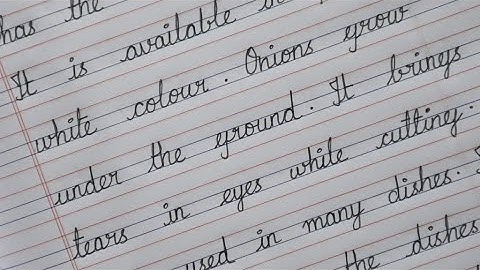 has the
It is available
white colour. Onions grow
under the ground. It brings
tears in eyes while cutting.
used in many dishes.
the dishes